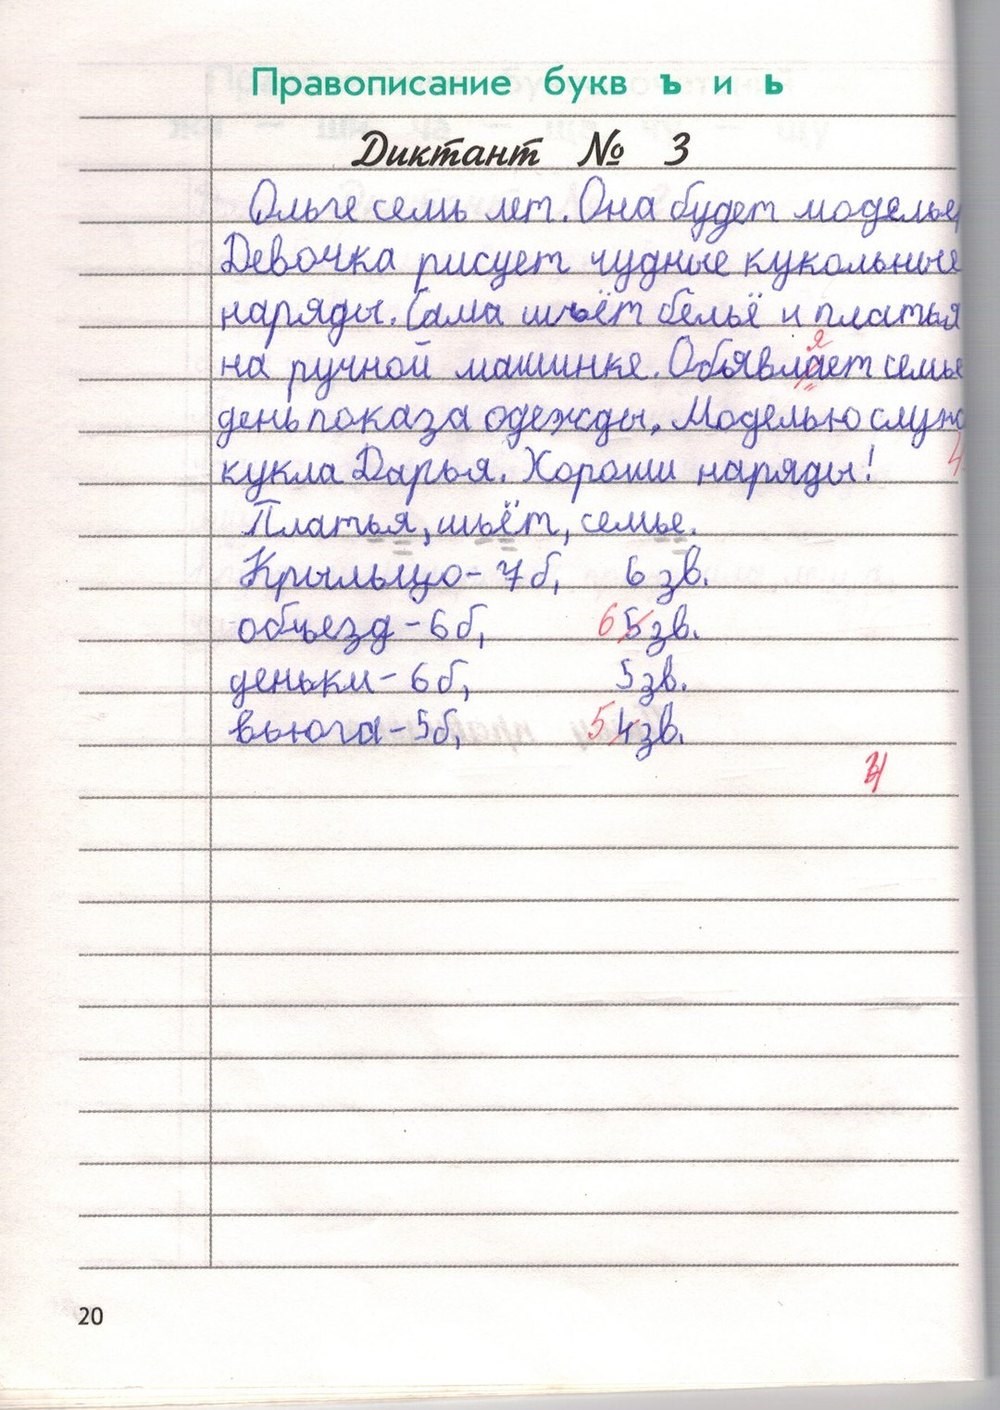 Правописание букв ъ и ь
Диктант № 3
Ольге семь лет. Она будет модельер
Девочка рисует чудные кукольные
наряды. Сама шьёт бельё и платья
я
на ручной машинке. Объявлает семье
день показа одежды. Моделью служ
кукла Дарья. Хороши наряды! 4
Платья, шьёт, семье.
Крыльцо - 7 б, 6 зв.
объезд - 6 б, 6 5 зв.
деньки - 6 б, 5 зв.
вьюга - 5 б, 5 4 зв.
20